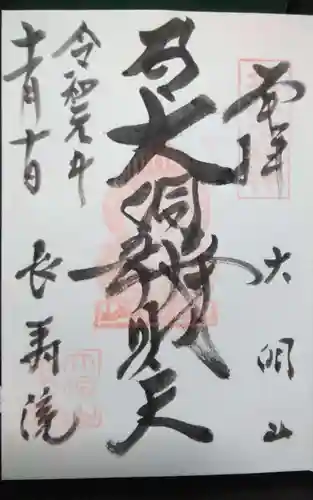 奉拝
大明山
大洞辨財天
令和元年
十一月十日
長寿院